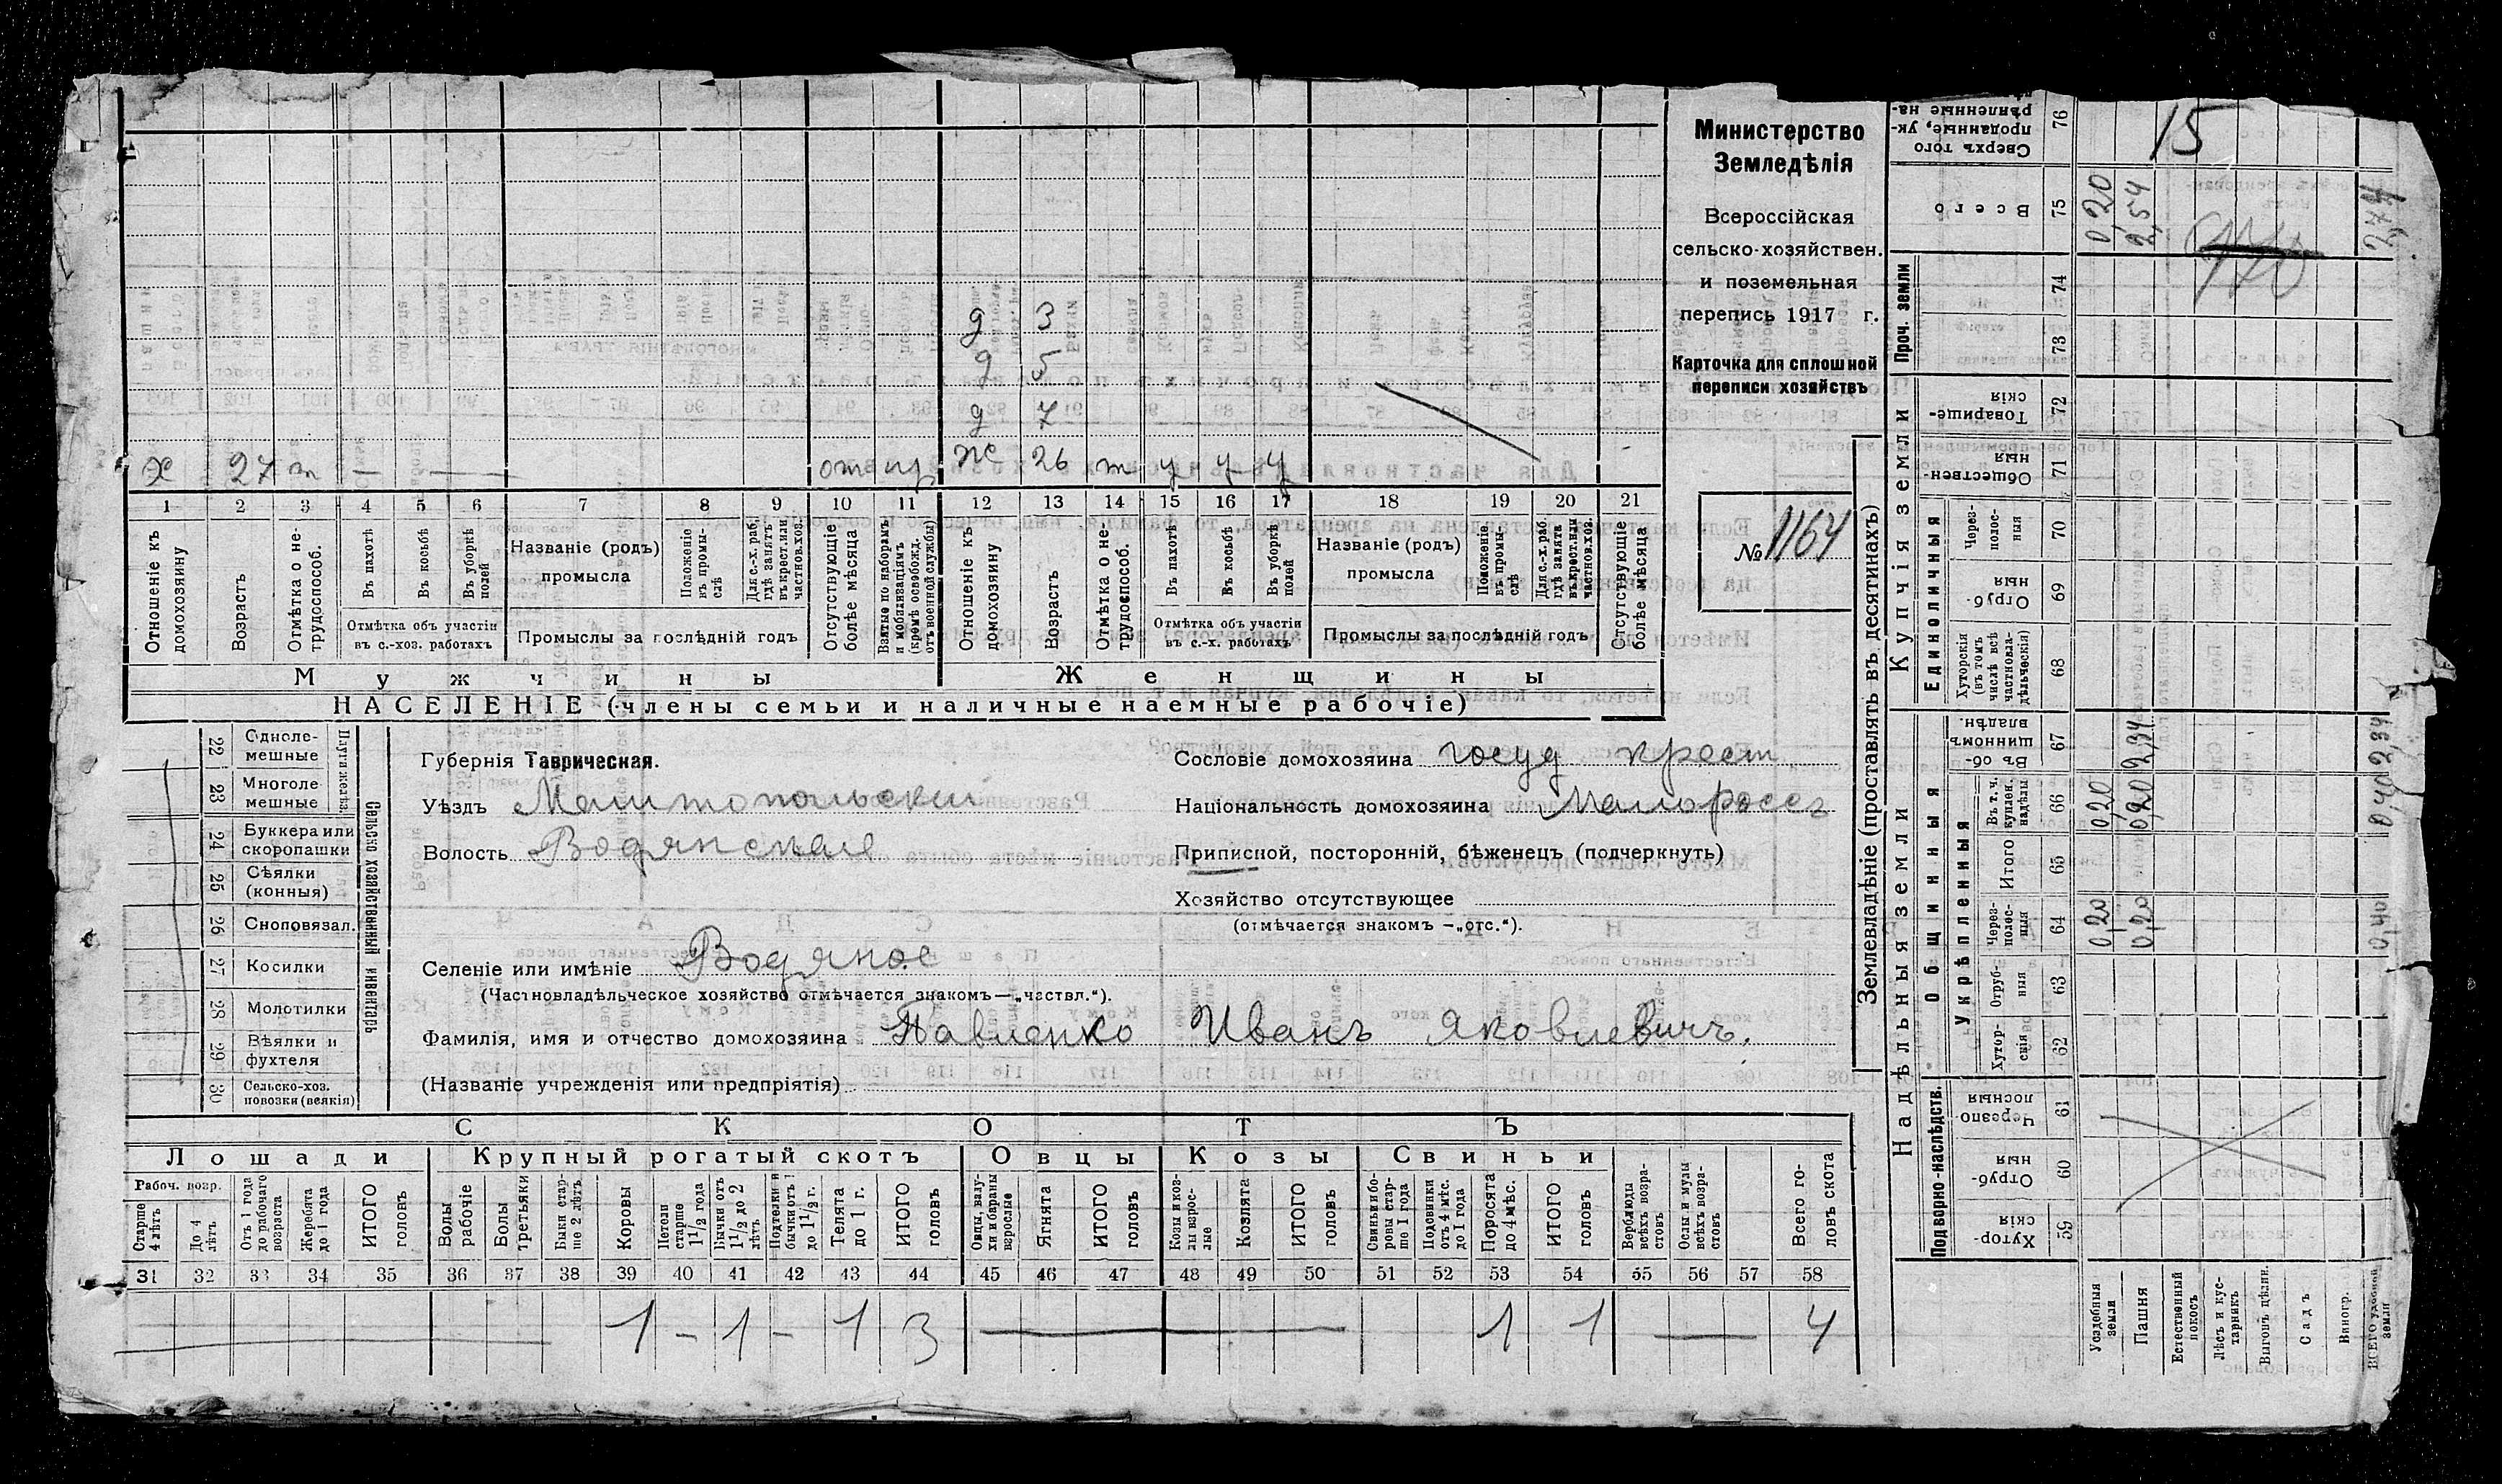 Министерство
Земледѣлія
Всероссійская
сельско-хозяйствен.
и поземельная
перепись 1917 г.
Карточка для сплошной
переписи хозяйствъ
№ 1164
д 3
д 5
д 7
х 27 т — — — от пр ж 26 т у у у
1 2 3 4 5 6 7 8 9 10 11 12 13 14 15 16 17 18 19 20 21
Отношеніе къ домохозяину
Возрастъ
Отмѣтка о не-трудоспособ.
Въ пахотѣ
Въ косьбѣ
Въ уборкѣ полей
Отмѣтка объ участіи въ с.-хоз. работахъ
Названіе (родъ) промысла
Положеніе въ промы-слѣ
Для с.-х. раб. гдѣ занятъ въ крест. или частнов. хоз.
Промыслы за послѣдній годъ
Отсутствующіе болѣе мѣсяца
Взятые по наборамъ и мобилизаціямъ (кромѣ освобожд. отъ военной службы)
Отношеніе къ домохозяину
Возрастъ
Отмѣтка о не-трудоспособ.
Въ пахотѣ
Въ косьбѣ
Въ уборкѣ полей
Отмѣтка объ участіи въ с.-х. работахъ
Названіе (родъ) промысла
Положеніе въ промы-слѣ
Для с.-х. раб. гдѣ занята въ крест. или частнов. хоз.
Промыслы за послѣдній годъ
Отсутствующіе болѣе мѣсяца
Мужчины Женщины
НАСЕЛЕНІЕ (члены семьи и наличные наемные рабочіе)
22 Одноле-мешные
23 Многоле-мешные
Плуги желѣз.
24 Буккера или скоропашки
25 Сѣялки (конныя)
26 Сноповязал.
27 Косилки
28 Молотилки
29 Вѣялки и фухтеля
30 Сельско-хоз. повозки (всякія)
Сельско хозяйственный инвентарь
Губернія Таврическая.
Уѣздъ Мелитопольский
Волость Водянская
Селеніе или имѣніе Водяное
(Частновладѣльческое хозяйство отмѣчается знакомъ—„частвл.“).
Фамилія, имя и отчество домохозяина Павленко Иванъ Яковлевичъ.
(Названіе учрежденія или предпріятія)
Сословіе домохозяина госуд крест
Національность домохозяина Малороссъ
Приписной, посторонній, бѣженецъ (подчеркнуть)
Хозяйство отсутствующее
(отмѣчается знакомъ —„отс.“).
СКОТЪ
Лошади Крупный рогатый скотъ Овцы Козы Свиньи
Рабоч. возр.
Старше 4 лѣтъ
До 4 лѣтъ
Отъ 1 года до рабочаго возраста
Жеребята до 1 года
ИТОГО головъ
Волы рабочіе
Волы третьяки
Быки стар-ше 2 лѣтъ
Коровы
Нетели старше 1½ года
Бычки отъ 1½ до 2 лѣтъ
Подтелки и бычки отъ 1 до 1½ г.
Телята до 1 г.
ИТОГО головъ
Овцы, валу-хи и бараны взрослые
Ягнята
ИТОГО головъ
Козы и коз-лы взрос-лые
Козлята
ИТОГО головъ
Свиньи и бо-ровы стар-ше 1 года
Подсвинки отъ 4 мѣс. до 1 года
Поросята до 4 мѣс.
ИТОГО головъ
Верблюды всѣхъ возра-стовъ
Ослы и мулы всѣхъ возра-стовъ
Всего го-ловъ скота
31 32 33 34 35 36 37 38 39 40 41 42 43 44 45 46 47 48 49 50 51 52 53 54 55 56 57 58
1 - 1 - 1 3 — 1 1 — 4
Землевладѣніе (проставлять въ десятинахъ)
Надѣльныя земли Купчія земли Проч. земли
Подворно-наслѣдств. Общинныя Единоличныя
Укрѣпленныя
Сверхъ того проданные, ук-рѣпленные на- 76 15
Всего 75 0,20 2,54 2,74
74
73
Товарище-скія 72
Обществен-ныя 71
Через-полос-ныя 70
Отруб-ныя 69
Хуторскія (въ томъ числѣ всѣ частновла-дѣльческія) 68
Въ об-щинномъ владѣн. 67 2,34 2,34
Въ т. ч. куплен. надѣлы 66 0,20 0,20 0,40
Итого 65
Через-полос-ныя 64 0,20 0,20 0,40
Отруб-ныя 63
Хутор-скія 62
Черезпо-лосныя 61
Отруб-ныя 60
Хутор-скія 59
Усадебныя земли
Пашня
Естественный покосъ
Лѣсъ и кус-тарникъ
Выгонъ цѣлин.
Садъ
Виногр.
ВСЕГО удобной земли